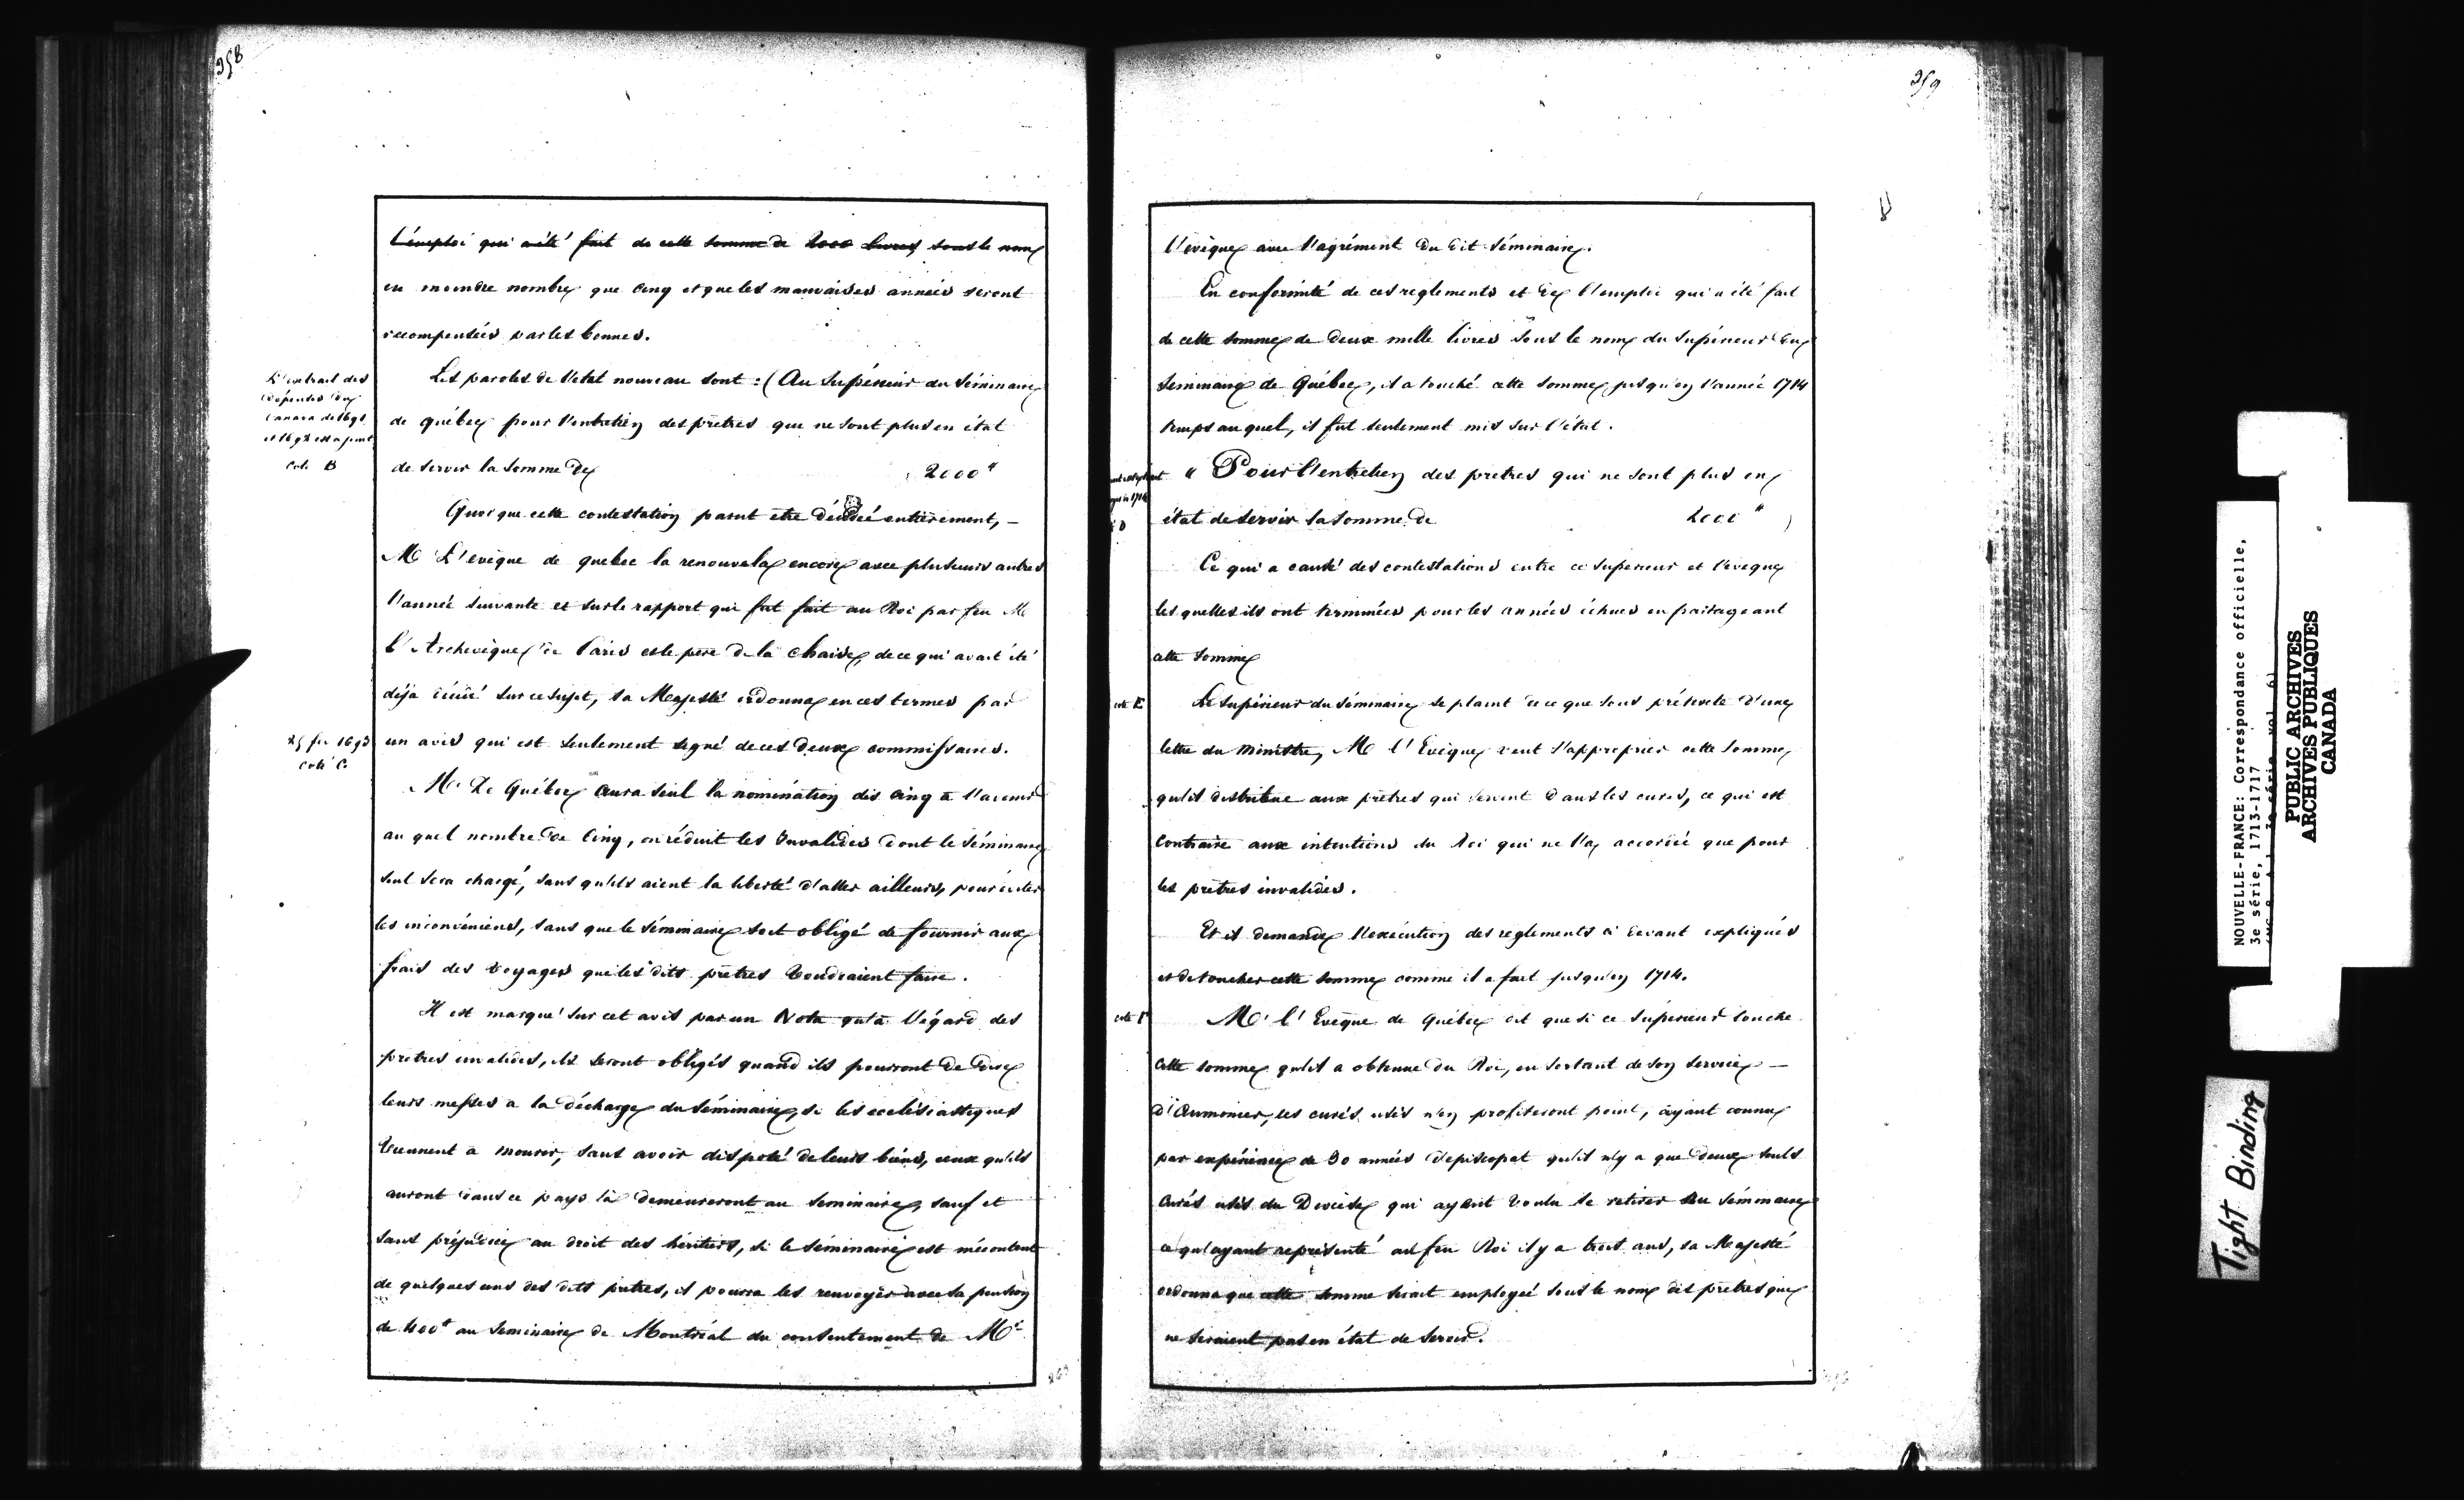 358
L'emploi qui a été fait de cette somme de 2000 livres sous le nom
en moindre nombre que cinq et que les mauvaises années seront
recompensées par les bonnes.
L'extrait des
dépenses du
Canada de 1691
et 1692 est a joint
Cote B
Les paroles de l'etat nouveau sont : (Au Supérieur du Séminaire
de québec pour l'entretien des prêtres qui ne sont plus en état
de servir la somme de 2000 "
Quoique cette contestation parut etre décidée entièrement, –
M L'evêque de quebec la renouvela encore avec plusieurs autres
l'année suivante et sur le rapport qui fut fait au Roi par feu M
l'Archevêque de Paris et le père de la Chaise, de ce qui avait été
déjà décidé sur ce sujet, sa Majesté ordonna en ces termes par
25 fev 1693
Coté C
un avis qui est seulement signé de ces deux commissaires.
M. De Québec aura seul la nomination des cinq à l'avenir
au quel nombre de Cinq, on réduit les Invalides dont le Séminaire
seul sera chargé, sans qu'ils aient la liberté d'aller ailleurs, pour éviter
les inconvéniens, sans que le Séminaire soit obligé de fournir aux
frais des voyages que les dits prêtres voudraient faire.
Il est marqué sur cet avis par un Nota qu'à l'égard des
prêtres invalides, ils seront obligés quand ils pourront de dire
leurs messes a la décharge du Séminaire, si les ecclésiastiques
viennent à mourir, sans avoir disposé de leurs biens, ceux qu'ils
auront dans ce pays là demeureront au Seminaire, sauf et
sans préjudice au droit des héritiers, si le Séminaire est mécontent
de quelques uns des dits prêtres, il pourra les renvoyer avec sa pension
de 400# au Seminaire de Montréal du consentement de Mr
359
l'evêque avec l'agrément du dit Séminaire.
En conformité de ces reglements et de l'emploi qui a été fait
de cette somme de deux mille livres sous le nom du Supérieur du
Seminaire de Québec, il a touché cette somme jusqu'en l'année 1714
temps auquel, il fut seulement mis sur l'état.
" Pour l'entretien des prêtres qui ne sont plus en
état de servir la somme de 2000 "
Ce qui a causé des contestations entre ce Superieur et l'evêque
lesquelles ils ont terminées pour les années échues en partageant
cette somme
cote E
Le Supérieur du Séminaire se plaint de ce que sous prétexte d'une
lettre du Ministre, M l'Evêque veut s'approprier cette somme
qu'il distribue aux prêtres qui servent dans les cures, ce qui est
Contraire aux intentions du Roi qui ne l'a accordée que pour
les prêtres invalides.
Et il demande l'exécution des reglements ci devant expliqués
et de toucher cette somme comme il a fait jusqu'en 1714.
cote F
M. l'Evêque de Québec dit que si ce Supérieur touche
Cette somme qu'il a obtenue du Roi, en sortant de son service –
d'Aumonier, les curés usés n'en profiteront point, ayant connu
par expérience de 30 années d'episcopat qu'il n'y a que deux seuls
Curés usés du Diocèse qui ayant voulu se retirer au Séminaire
ce qu'ayant représenté au feu Roi il y a trois ans, sa Majesté
ordonna que cette somme serait employée sous le nom des prêtres qui
ne seraient pas en état de servir.
NOUVELLE-FRANCE: Correspondance officielle,
3e série, 1713-1717
PUBLIC ARCHIVES
ARCHIVES PUBLIQUES
CANADA
Tight Binding